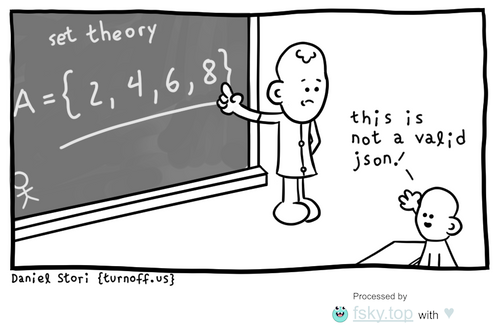 set theory
A = {2, 4, 6, 8}
this is
not a valid
json!
Daniel Stori {turnoff.us}
Processed by
fsky.top with ♥